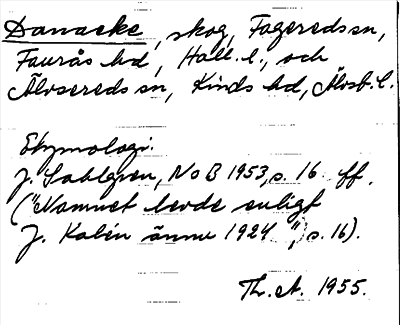 Danaeke, skog, Fagereds sn,
Faurås hd, Hall. l., och
Älvsereds sn, Kinds hd, Älvsb. l.
Etymologi:
J. Sahlgren, NoB 1953, s. 16 ff.
("Namnet levde enligt
J. Kalén ännu 1924", s. 16).
Th. A. 1955.